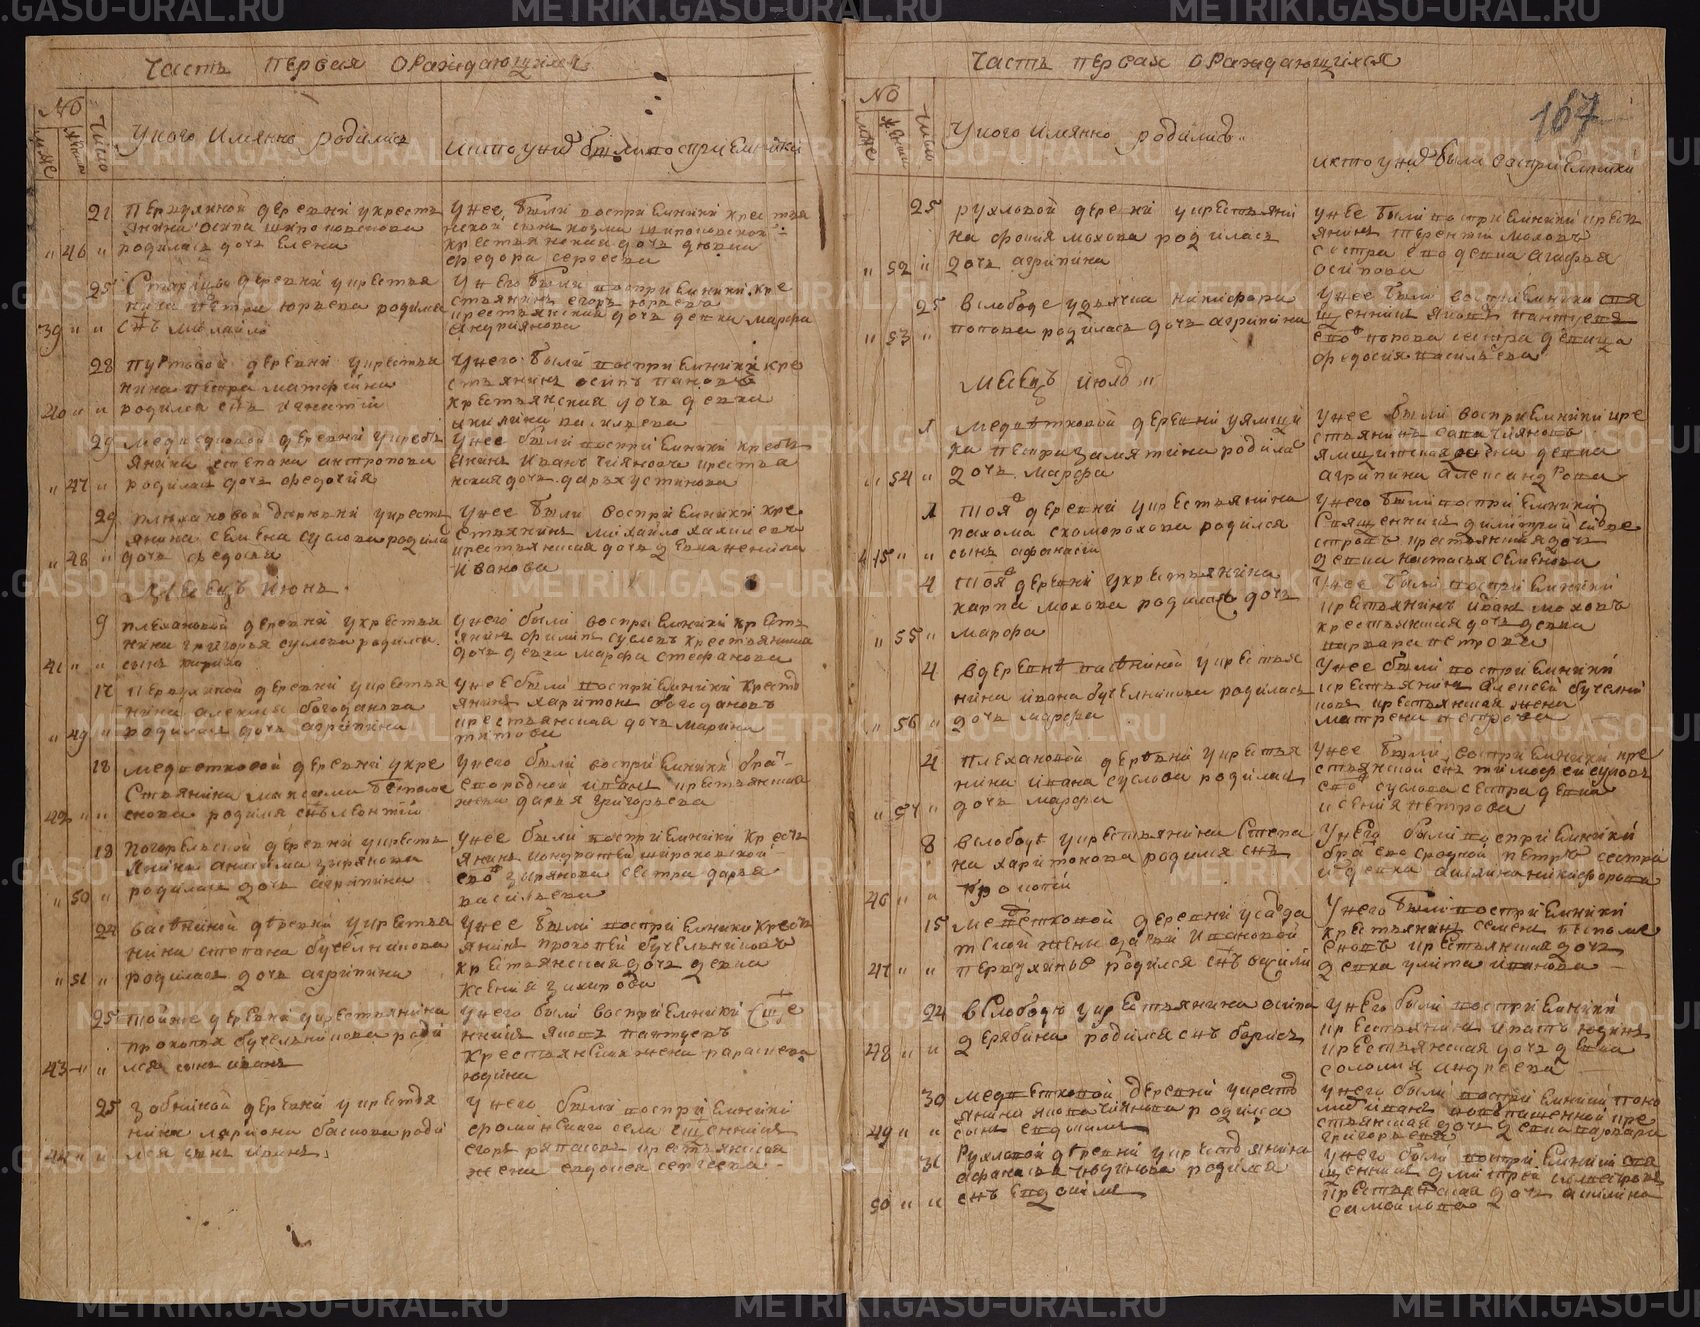 Часть первая о раждающихся
№
муже
женск
число
У кого имянно родились
и кто у них были восприемники
21 Первухиной деревни у крестьянина
46 родилась дочь Елена
У нее были восприемники крестья
крестьянская дочь девка
Федора Сергеева
25 деревни у крестья
нина Петра Юрьева родился
39 снъ Михайло
У него были восприемники кре
стьянинъ Егоръ Юрьевъ
крестьянская дочь девка Марфа
Андриянова
28 деревни у крестья
нина Петра Матфеина
40 родился снъ Игнатий
У него были восприемники кре
стьянинъ Осипъ Пановъ
крестьянская дочь девка
Акилина Васильева
29 деревни у кресть
янина Степана Антропова
47 родилась дочь Федосия
У нее были восприемники кресть
янинъ Иванъ Чияновъ крестья
нская дочь Дарья Устинова
29 Плехановой деревни у кресть
янина Семена Суслова родила
48 дочь Федосья
У нее были восприемники кре
стьянинъ Михайло
крестьянская дочь девка
Иванова
Месецъ июнь
9 Плехановой деревни у крестья
нина Григорья Суслова родился
41 сынъ Кирило
У него были восприемники крест
янинъ Филипъ Сусловъ крестьянская
дочь девка Марфа Стефанова
17 Первухиной деревни у крестья
нина Алексея Богоданова
49 родилася дочь Агрипина
У нее были восприемники кресть
янинъ Харитонъ Богодановъ
крестьянская дочь Марина
Титова
18 Медветковой деревни у кре
стьянина Максима Беспоме
42 снова родился снъ Леонтий
У него были восприемники бра
ево родной Иванъ крестьянская
жена Дарья Григорьева
18 Погорельской деревни у кресть
янина Анисима Зырянова
50 родилась дочь Агрипина
У нее были восприемники кресть
янинъ Кондратей Широковской
ево Зырянова сестра Дарья
Васильева
24 Пасеиной деревни у крестья
нина Степана Бучельникова
51 родилась дочь Агрипина
У нее были восприемники кресть
янинъ Прокопей Бучельниковъ
крестьянская дочь девка
Ксения Захарова
25 той же деревни у крестьянина
Прокопья Бучельникова роди
43 лся сынъ Иванъ
У него были восприемники свяще
нникъ Яковъ Пантуевъ
крестьянская жена Парасковья
Юдина
25 Зобниной деревни у крестья
нина Лариона Баскова роди
44 лся сынъ Иванъ
У него были восприемники
Фоминского села сщенникъ
Егоръ Ряпасовъ крестьянская
жена Евдокея Сергеева

Часть первая о раждающихся
167
№
муже
женск
число
У кого имянно родились
и кто у них были восприемники
25 Рухловой деревни у крестьяни
на Фокия Мохова родилась
52 дочь Агрипина
У нее были восприемники кресть
янинъ Терентий Моховъ
сестра ево девка Агафья
Осипова
25 В слободе у дьячка Никифора
53 Попова родилась дочь Агрипина
У нее были восприемники свя
щенникъ Яковъ Пантуевъ
ево Попова сестра девица
Федосия Васильева
Месецъ июль
1 Медветковой деревни у ямщи
ка Петра Замятина родила
54 дочь Марфа
У нее были восприемники кре
стьянинъ Сава Чияновъ
ямщитская жена девка
Агрипина Александрова
1 Той деревни у крестьянина
Пахома Скоморохова родился
45 сынъ Афанасий
У него были восприемники
священникъ Димитрий Силве
стровъ крестьянская дочь
девка Настасья Семенова
4 Той деревни у крестьянина
Карпа Мохова родилась дочь
55 Марфа
У нее были восприемники
крестьянинъ Иванъ Моховъ
крестьянская дочь девка
Варвара Петрова
4 В деревне Пасеиной у крестья
нина Ивана Бучельникова родилась
56 дочь Марфа
У нее были восприемники
крестьянинъ Алексей Бучелни
ковъ крестьянская жена
Матрена Петрова
4 Плехановой деревни у крестья
нина Ивана Суслова родилась
57 дочь Марфа
У нее были восприемники кре
стьянской снъ Тимофей Сусловъ
ево Суслова сестра девка
Ксения Петрова
8 В слободе у крестьянина Степа
на Харитонова родился снъ
46 Прокопей
У него были восприемники
бра ево сродной Петръ сестра
девка Акилина Никифорова
15 Медветковой деревни у солда
тской жены Ивановой
47 Первухиной родился снъ
У него были восприемники
крестьянинъ Семенъ Беспоме
сновъ крестьянская дочь
девка Улита Иванова
24 В слободе у крестьянина Осипа
Дерябина родился снъ Борисъ
48
У него были восприемники
крестьянинъ Игнатъ Юдинъ
крестьянская дочь девка
Соломия Андреева
30 Медветковой деревни у кресть
янина Якова Чиянова родился
49 сынъ Евдокимъ
У него были восприемники поно
марь Иванъ
стьянская дочь девка Варвара
Григорьева
31 Рухловой деревни у крестьянина
Афанасья Чюдинова родился
50 снъ Евдокимъ
У него были восприемники свя
щенникъ Дмитрей Силвестровъ
крестьянская дочь Акилина
Самойлова